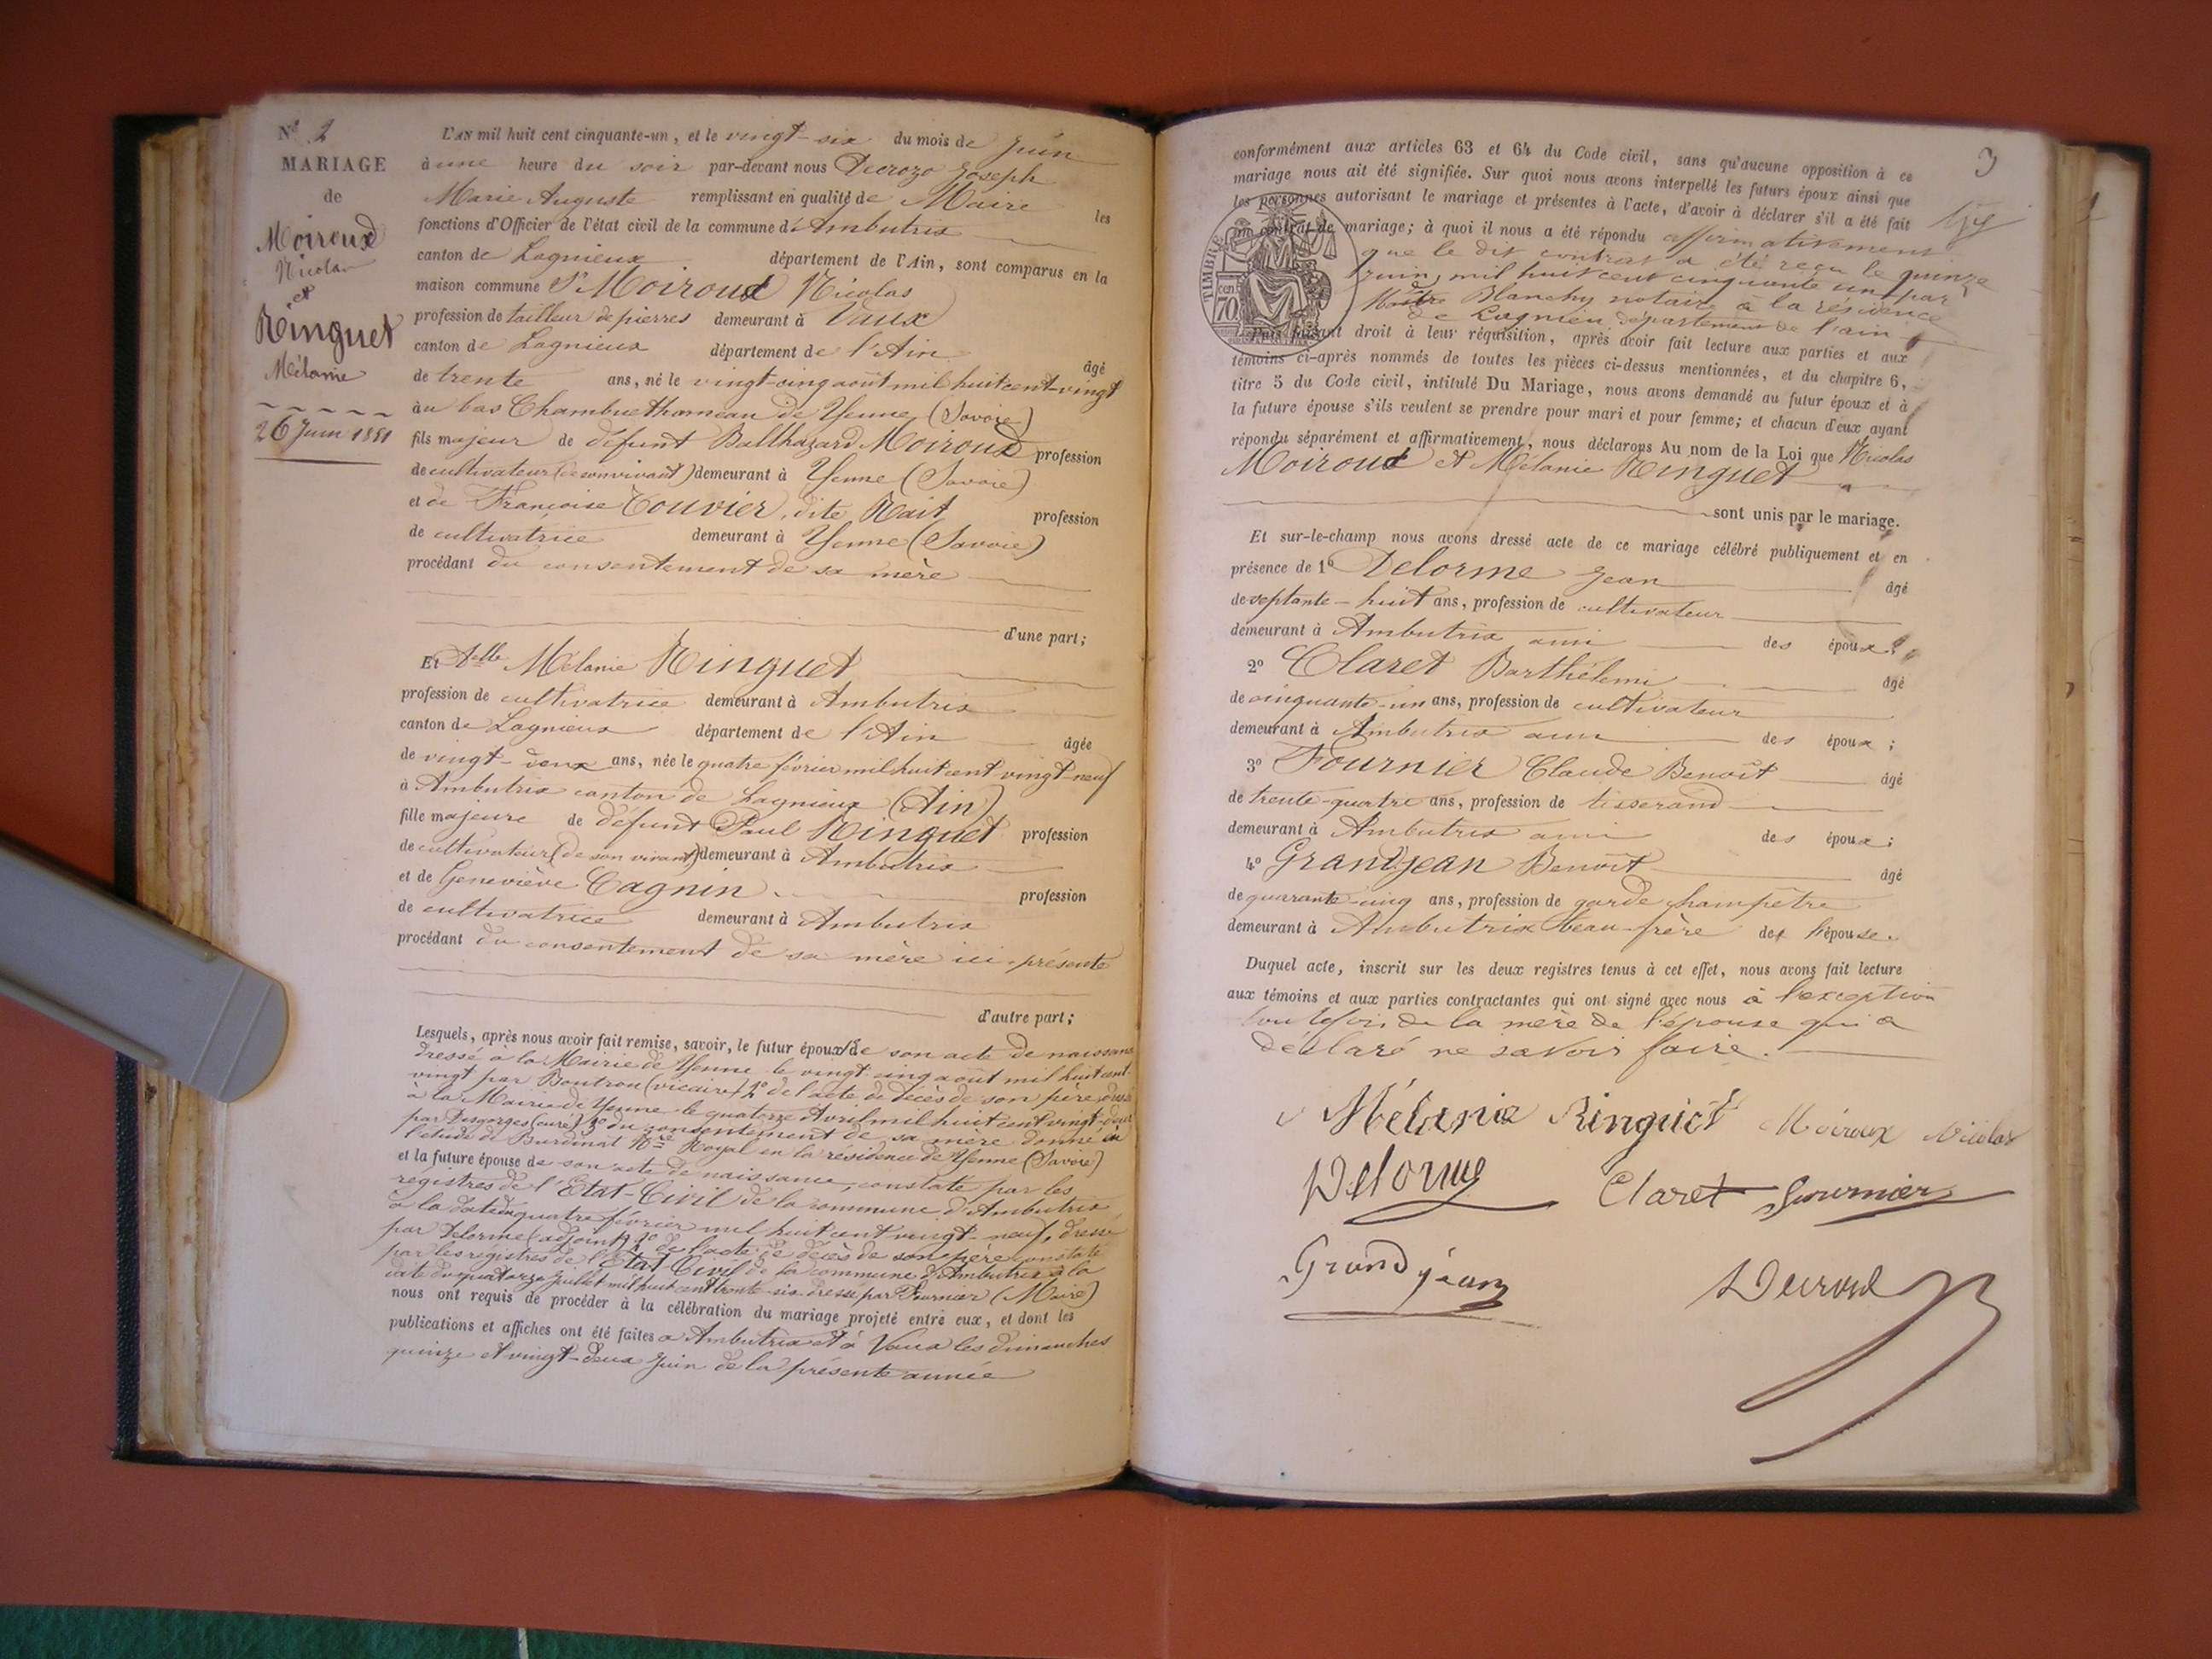 N° 2
MARIAGE
de
Moiroud
Nicolas
et
Ringuet
Mélanie
26 Juin 1851
L'AN mil huit cent cinquante-un, et le vingt-six du mois de Juin
à une heure du soir par-devant nous Decrozo Joseph
Marie Auguste remplissant en qualité de Maire les
fonctions d'Officier de l'état civil de la commune d'Ambutrix
canton de Lagnieux département de l'Ain, sont comparus en la
maison commune Sr Moiroud Nicolas
profession de tailleur de pierres demeurant à Vaux
canton de Lagnieux département de l'Ain âgé
de trente ans, né le vingt-cinq août mil huit cent-vingt
au bas Chambuet hameau de Yenne (Savoie)
fils majeur de défunt Balthazard Moiroud profession
de cultivateur (de son vivant) demeurant à Yenne (Savoie)
et de Françoise Couvier, dite Rait profession
de cultivatrice demeurant à Yenne (Savoie)
procédant du consentement de sa mère
d'une part;
Et Delle Mélanie Ringuet
profession de cultivatrice demeurant à Ambutrix
canton de Lagnieux département de l'Ain âgée
de vingt-deux ans, née le quatre février mil huit cent vingt-neuf
à Ambutrix canton de Lagnieux (Ain)
fille majeure de défunt Paul Ringuet profession
de cultivateur (de son vivant) demeurant à Ambutrix
et de Geneviève Cagnin profession
de cultivatrice demeurant à Ambutrix
procédant du consentement de sa mère ici-présente
d'autre part;
Lesquels, après nous avoir fait remise, savoir, le futur époux de son acte de naissance
dressé à la Mairie de Yenne le vingt cinq août mil huit cent
vingt par Boutron (vicaire) 2° de l'acte de décès de son père, dressé
à la Mairie de Yenne le quatorze Avril mil huit cent vingt-deux
par Desgorges (curé) 3° du consentement de sa mère donné en
l'étude de Burdinat Nre Royal en la résidence de Yenne (Savoie)
et la future épouse de son acte de naissance, constaté par les
registres de l'Etat-Civil de la commune d'Ambutrix
à la date du quatre février mil huit cent vingt-neuf, dressé
par Delorme (adjoint) 2° de l'acte de décès de son père constaté
par les registres de l'Etat Civil de la commune d'Ambutrix à la
date du quatorze Juillet mil huit cent trente-six dressé par Fournier (Maire)
nous ont requis de procéder à la célébration du mariage projeté entre eux, et dont les
publications et affiches ont été faites à Ambutrix et à Vaux les dimanches
quinze et vingt-deux Juin de la présente année
3
conformément aux articles 63 et 64 du Code civil, sans qu'aucune opposition à ce
mariage nous ait été signifiée. Sur quoi nous avons interpellé les futurs époux ainsi que
les personnes autorisant le mariage et présentes à l'acte, d'avoir à déclarer s'il a été fait
un contrat de mariage; à quoi il nous a été répondu affirmativement
que le dit contrat a été reçu le quinze
juin, mil huit cent cinquante un, par
Maître Blanchy notaire à la résidence
de Lagnieu département de l'ain
TIMBRE
70
Puis faisant droit à leur réquisition, après avoir fait lecture aux parties et aux
témoins ci-après nommés de toutes les pièces ci-dessus mentionnées, et du chapitre 6,
titre 5 du Code civil, intitulé Du Mariage, nous avons demandé au futur époux et à
la future épouse s'ils veulent se prendre pour mari et pour femme; et chacun d'eux ayant
répondu séparément et affirmativement, nous déclarons Au nom de la Loi que Nicolas
Moiroud et Mélanie Ringuet
sont unis par le mariage.
Et sur-le-champ nous avons dressé acte de ce mariage célébré publiquement et en
présence de 1° Delorme Jean âgé
de septante-huit ans, profession de cultivateur
demeurant à Ambutrix ami des époux;
2° Claret Barthélemi âgé
de cinquante-un ans, profession de cultivateur
demeurant à Ambutrix ami des époux;
3° Fournier Claude Benoît âgé
de trente-quatre ans, profession de tisserand
demeurant à Ambutrix ami des époux;
4° Grandjean Benoît âgé
de quarante-cinq ans, profession de garde champêtre
demeurant à Ambutrix beau-frère de l'épouse.
Duquel acte, inscrit sur les deux registres tenus à cet effet, nous avons fait lecture
aux témoins et aux parties contractantes qui ont signé avec nous à l'exception
toutefois de la mère de l'épouse qui a
déclaré ne savoir faire.
Mélanie Ringuet Moiroux Nicolas
Delorme Claret Fournier
Grandjean Decrozo